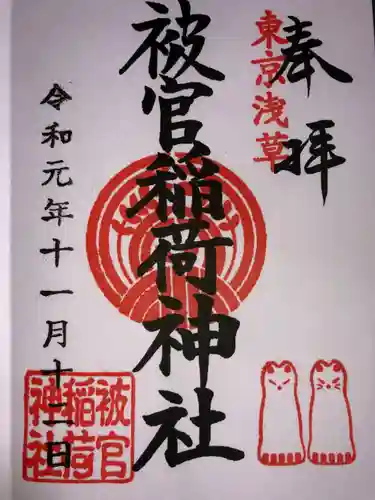 奉拝
東京浅草
被官稲荷神社
令和元年十一月十二日
被官
稲荷
神社